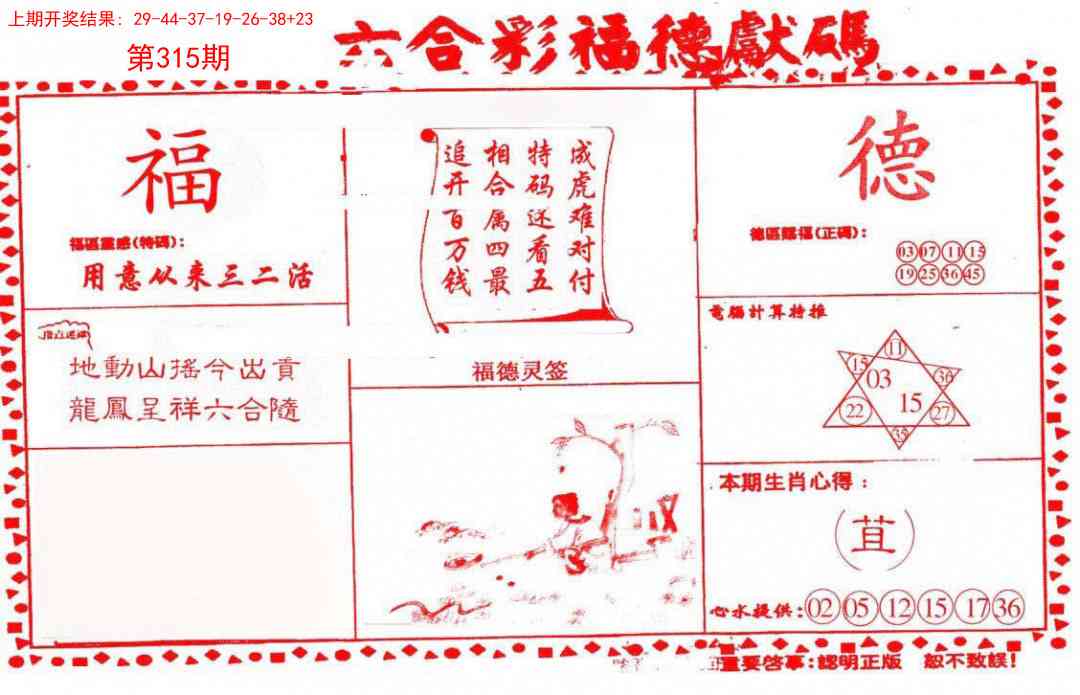 上期开奖结果：29-44-37-19-26-38+23
第315期
六合彩福德獻碼
福
福區靈感(特碼)：
用意从来三二活
地動山搖今出貢
龍鳳呈祥六合隨
成虎难对付
特码还看五
相合属四最
追开百万钱
福德灵签
德
德區賜福(正碼)：
03 07 11 15
19 25 36 45
電腦計算特推
11
15 36
03
15
22 27
35
本期生肖心得：
（苴）
心水提供：02 05 12 15 17 36
重要啓事：認明正版 恕不致誤！